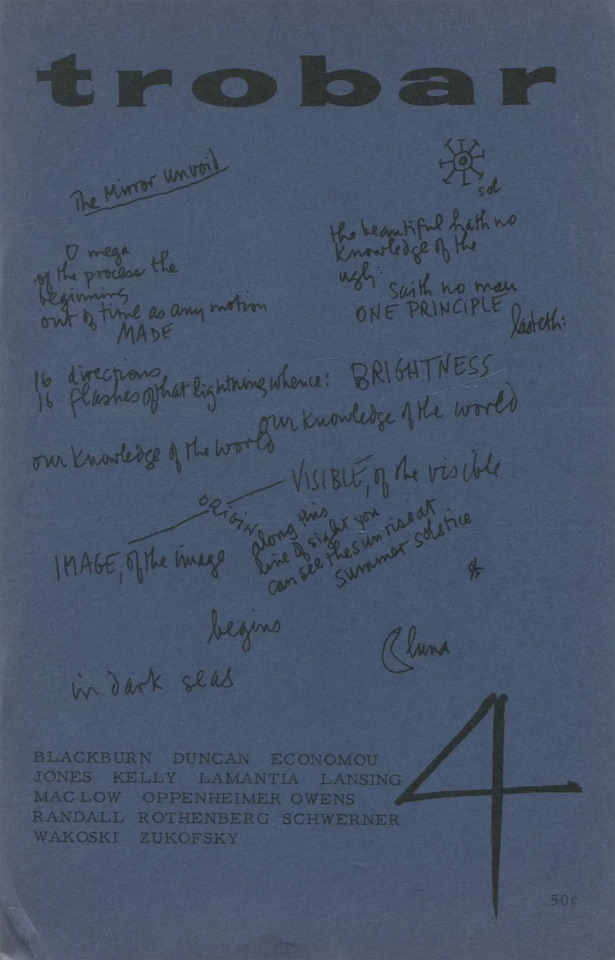 trobar
The Mirror Unvoid
sol
O mega
of the process the
beginning
out of time as any motion
MADE
the beautiful hath no
knowledge of the
ugly
saith no man
ONE PRINCIPLE
lasteth:
16 directions,
16 flashes of that lightning whence: BRIGHTNESS
our knowledge of the world
our knowledge of the world
VISIBLE, of the visible
ORIGIN
IMAGE, of the image
along this
line of sight you
can see the sun rise at
summer solstice
begins
luna
in dark seas
4
BLACKBURN DUNCAN ECONOMOU
JONES KELLY LAMANTIA LANSING
MAC LOW OPPENHEIMER OWENS
RANDALL ROTHENBERG SCHWERNER
WAKOSKI ZUKOFSKY
50¢